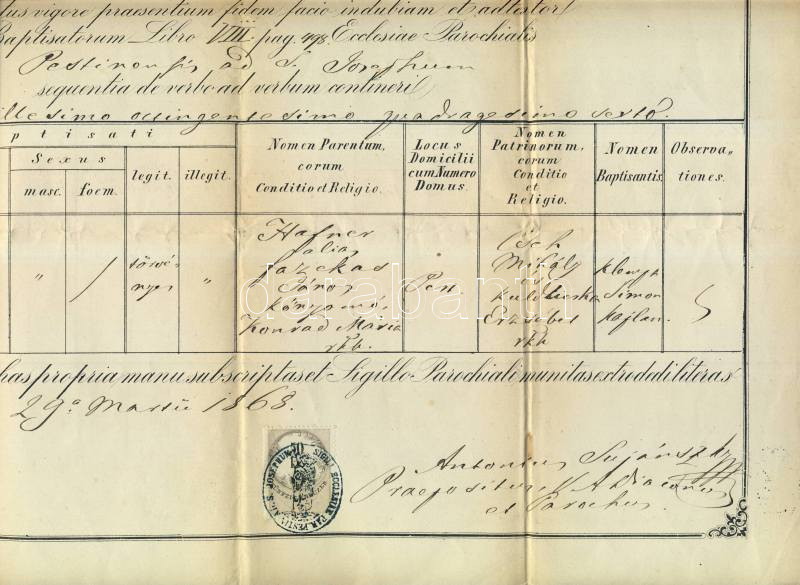 tus vigore praesentium fidem facio indubiam et adtestor
Baptisatorum Libro VIII. pag. 498. Ecclesiae Parochialis
Pestinensis ad S. Josephum
sequentia de verbo ad verbum contineri
llesimo octingentesimo quadragesimo sexto.
ptisati
Sexus
masc. foem. legit. illegit.
Nomen Parentum, eorum Conditio et Religio.
Locus Domicilii cum Numero Domus.
Nomen Patrinorum, eorum Conditio et Religio.
Nomen Baptisantis.
Observationes.
" / törvé-
nyes "
Hafner
alias
Fazekas
János
Konrad Mária
rkb.
Pest.
Mihály
Erzsébet
rkb
Simon
káplán.
has propria manu subscriptas et Sigillo Parochiali munitas extradedi literas
29a Martii 1868.
50
SIGILL. ECCLESIAE PAR. PESTIN. AD S. JOSEPHUM
Antonius Sujánszky
Praepositus
et Parochus
darabanth